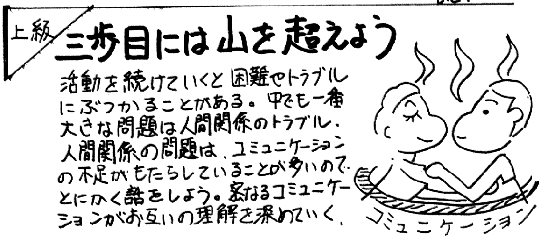 上級
三歩目には山を超えよう
活動を続けていくと困難やトラブル
にぶつかることがある。中でも一番
大きな問題は人間関係のトラブル.
人間関係の問題は、コミュニケーション
の不足がもたらしていることが多いので
とにかく話をしよう。密なるコミュニケー
ションがお互いの理解を深めていく.
コミュニケーション